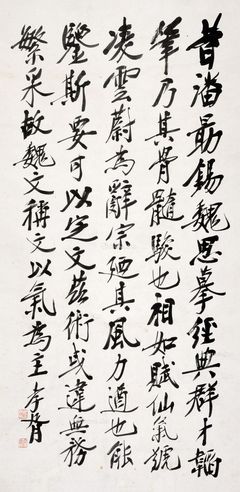 昔潘勗錫魏思摹經典群才韜
筆乃其骨髓駿也相如賦仙氣號
凌雲蔚為辭宗廼其風力遒也能
鑒斯要可以定文茲術或違無務
繁采故魏文稱文以氣為主 孝胥